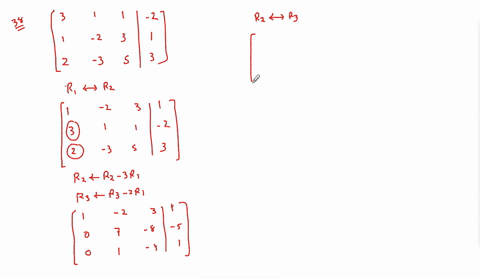 38
3 1 1 | -2
1 -2 3 | 1
2 -3 5 | 3
R1 ↔ R2
1 -2 3 | 1
3 1 1 | -2
2 -3 5 | 3
R2 ← R2-3R1
R3 ← R3-2R1
1 -2 3 | 1
0 7 -8 | -5
0 1 -4 | 1
R2 ↔ R3